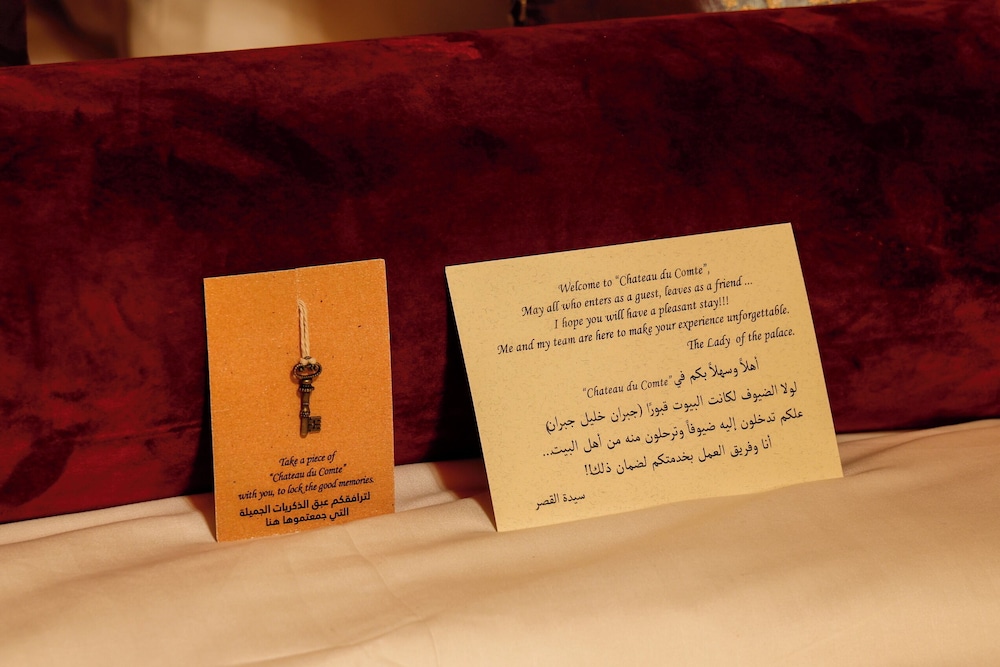 Take a piece of
“Chateau du Comte”
with you, to lock the good memories.
لترافقكم عبق الذكريات الجميلة
التي جمعتموها هنا
Welcome to “Chateau du Comte”,
May all who enters as a guest, leaves as a friend ...
I hope you will have a pleasant stay!!!
Me and my team are here to make your experience unforgettable.
The Lady of the palace.
أهلاً وسهلاً بكم في “Chateau du Comte”
لولا الضيوف لكانت البيوت قبورًا (جبران خليل جبران)
علكم تدخلون إليه ضيوفاً وترحلون منه من أهل البيت...
أنا وفريق العمل بخدمتكم لضمان ذلك!
سيدة القصر